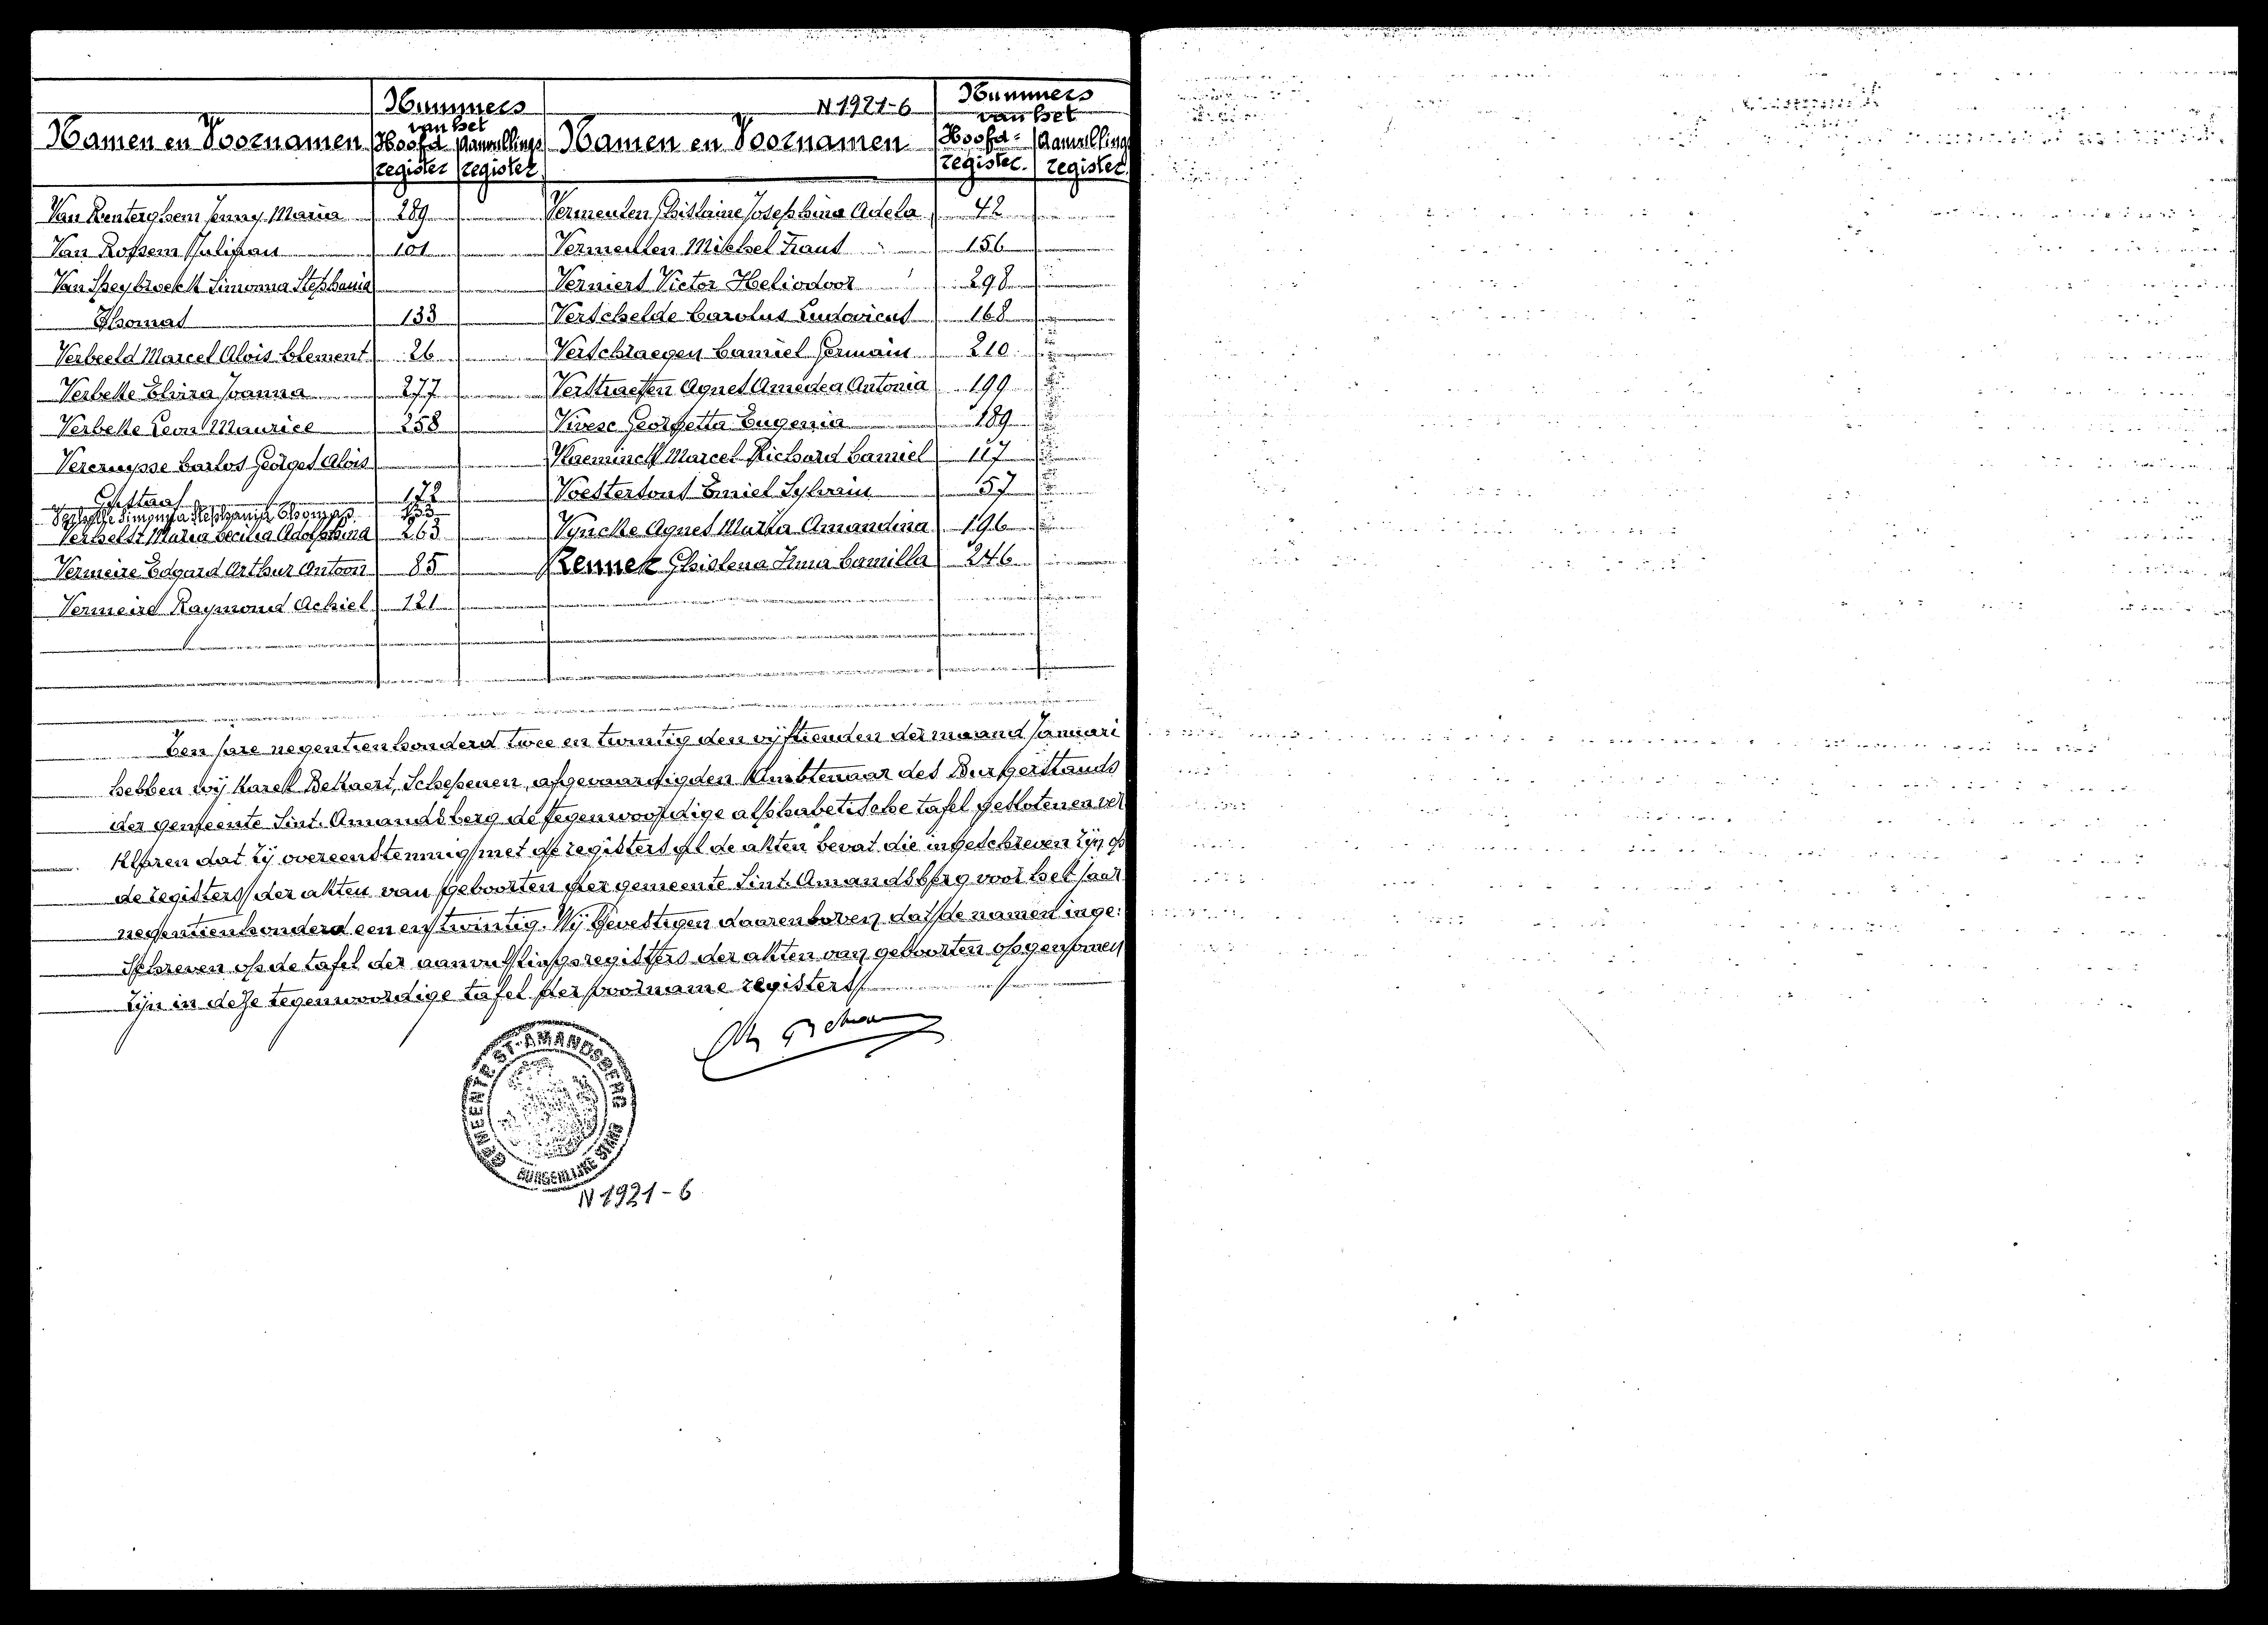 N 1921-6
Namen en Voornamen
Nummers
van het
Hoofd
register
Aanvullings
register
Van Renterghem Jenny Maria 289
Van Rossem Julipau 101
Van Speybroeck Simonna Stephania
Thomas 133
Verbeeld Marcel Alois Clement 26
Verbeke Elvira Joanna 277
Verbeke Leon Maurice 258
Vercruysse Carlos Georges Alois
Gustaaf 172
Simonna Stephania Thomas 133
Verhelst Maria Cecilia Adolphina 263
Vermeire Edgard Arthur Antoon 85
Vermeire Raymond Achiel 121
Namen en Voornamen
Nummers
van het
Hoofd=
register.
Aanvulling
register
Vermeulen Ghislaine Josephina Adela 42
Vermeulen Michel Frans 156
Verniers Victor Heliodoor 298
Verschelde Carolus Ludovicus 168
Verschraegen Camiel Germain 210
Verstraeten Agnes Amedea Antonia 199
Georgetta Eugenia 189
Vlaeminck Marcel Richard Camiel 117
Emiel Sylvain 57
Vyncke Agnes Maria Amandina 196
Zenner Ghislena Irma Camilla 246
Ten jare negentienhonderd twee en twintig den vijftienden der maand Januari
hebben wij Karel Bekaert, Schepenen, afgevaardigden Ambtenaar des Burgerstands
der gemeente Sint. Amandsberg de tegenwoordige alphabetische tafel gesloten en ver
klaren dat zij overeenstemmig met de registers al de akten bevat die ingeschreven zijn op
de registers der akten van geboorten der gemeente Sint. Amandsberg voor het jaar
negentienhonderd een en twintig. Wij bevestigen daarenboven dat de namen inge:
schreven op de tafel der aanvullingsregisters der akten van geboorten opgenomen
zijn in deze tegenwoordige tafel der voorname registers
GEMEENTE ST-AMANDSBERG
BURGERLIJKE STAND
N 1921-6